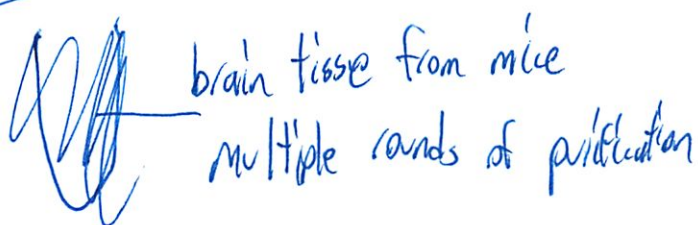 brain tisse from mice
multiple rounds of purification